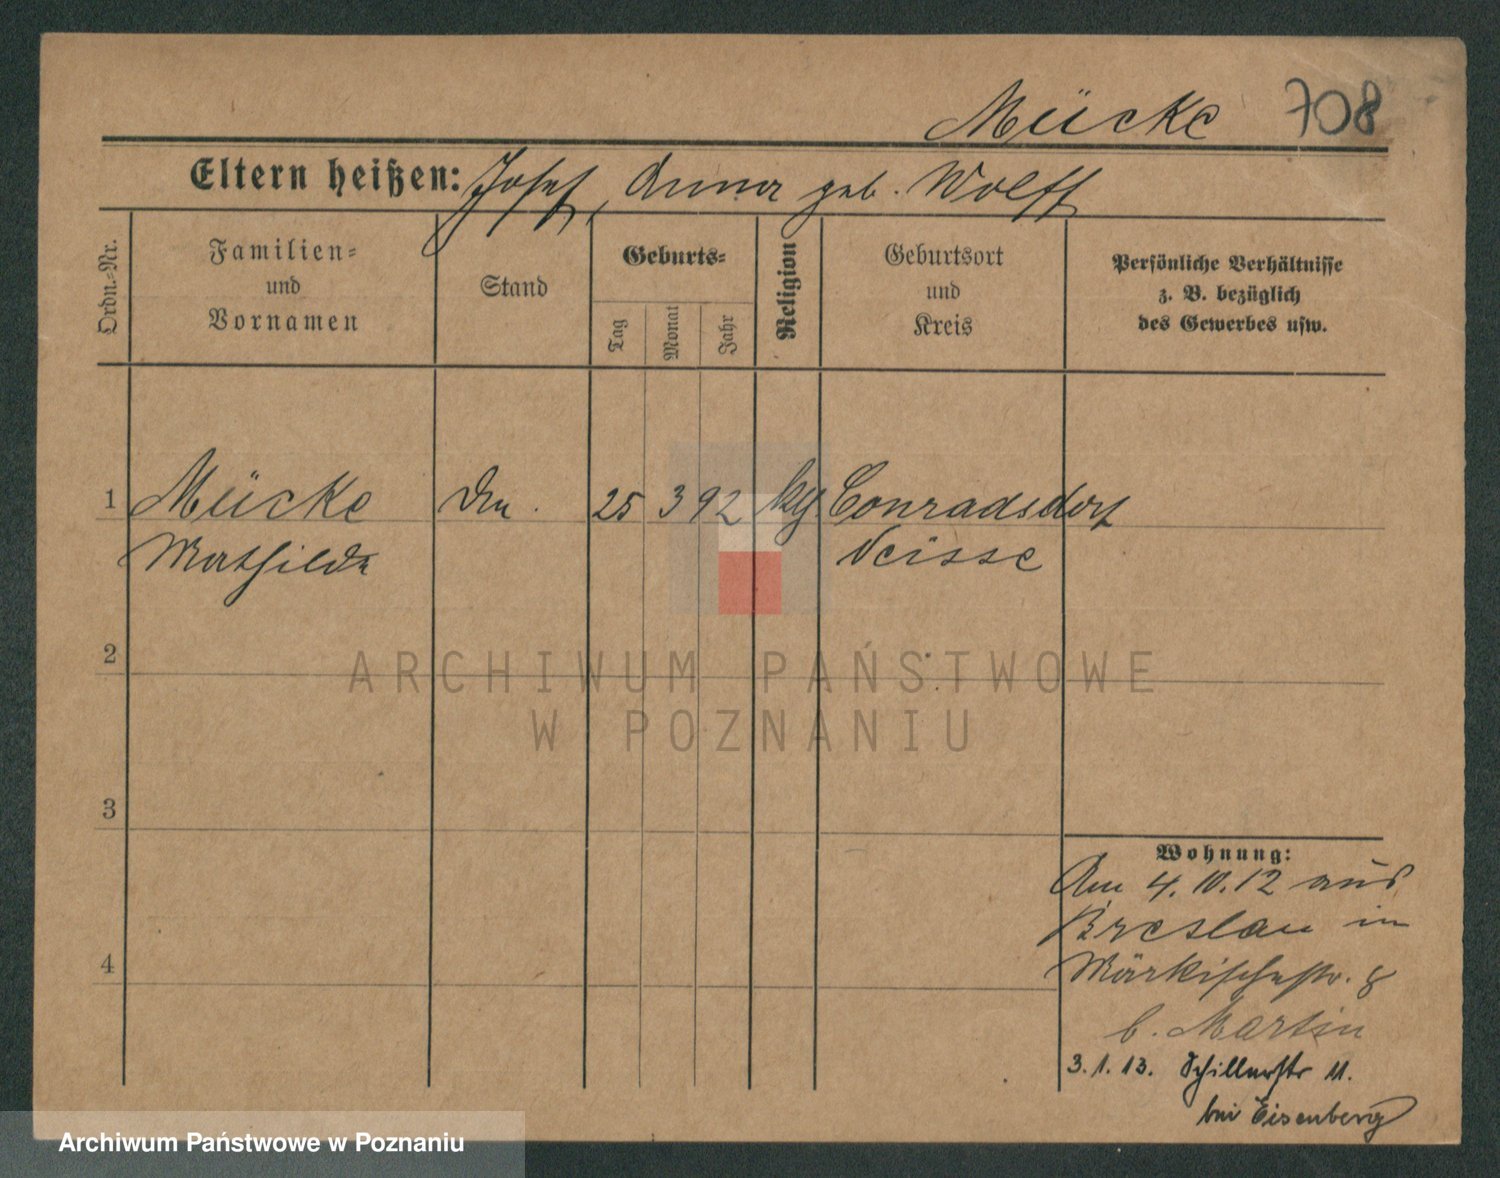 Mücke 708
Eltern heißen: Josef, Anna geb. Wolff
Ordn.-Nr.
Familien-
und
Vornamen
Stand
Geburts-
Tag
Monat
Jahr
Religion
Geburtsort
und
Kreis
Persönliche Verhältnisse
z. B. bezüglich
des Gewerbes usw.
1 Mücke 25 3 92 Conradsdorf
Mathilde Neisse
2
ARCHIWUM PAŃSTWOWE
W POZNANIU
3
Wohnung:
Am 4.10.12 aus
Breslau in
4 Märkischestr. 8
b. Martin
3.1.13. Schillerstr 11.
bei Eisenberg
Archiwum Państwowe w Poznaniu